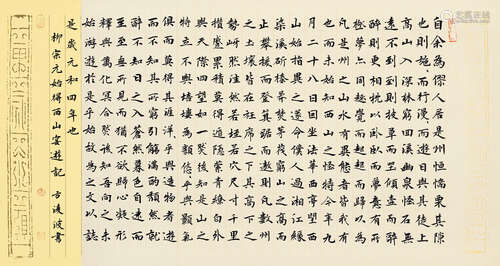 自余為僇人居是州恒惴慄其隙
也則施施而行漫漫而遊日與其徒上
高山入深林窮迴溪幽泉怪石無
遠不到到則披草而坐傾壺而醉
醉則更相枕以臥臥而夢意有所
極夢亦同趣覺而起起而歸以為
凡是州之山水有異態者皆我有
也而未始知西山之怪特今年九
月二十八日因坐法華西亭望西
山始指異之遂命僕人過湘江緣
染溪斫榛莽焚茅茷窮山之高而
止攀援而登箕踞而遨則凡數州
之土壤皆在衽席之下其高下之
勢岈然洼然若垤若穴尺寸千里
攢蹙累積莫得遁隱縈青繚白外
與天際四望如一然後知是山之
特立不與培塿為類悠悠乎與顥氣
俱而莫得其涯洋洋乎與造物者遊
而不知其所窮引觴滿酌頹然就
醉不知日之入蒼然暮色自遠而
至至無所見而猶不欲歸心凝形
釋與萬化冥合然後知吾向之未
始游遊於是乎始故為之文以誌
是歲元和四年也
柳宗元始得西山宴遊記 方凌波書